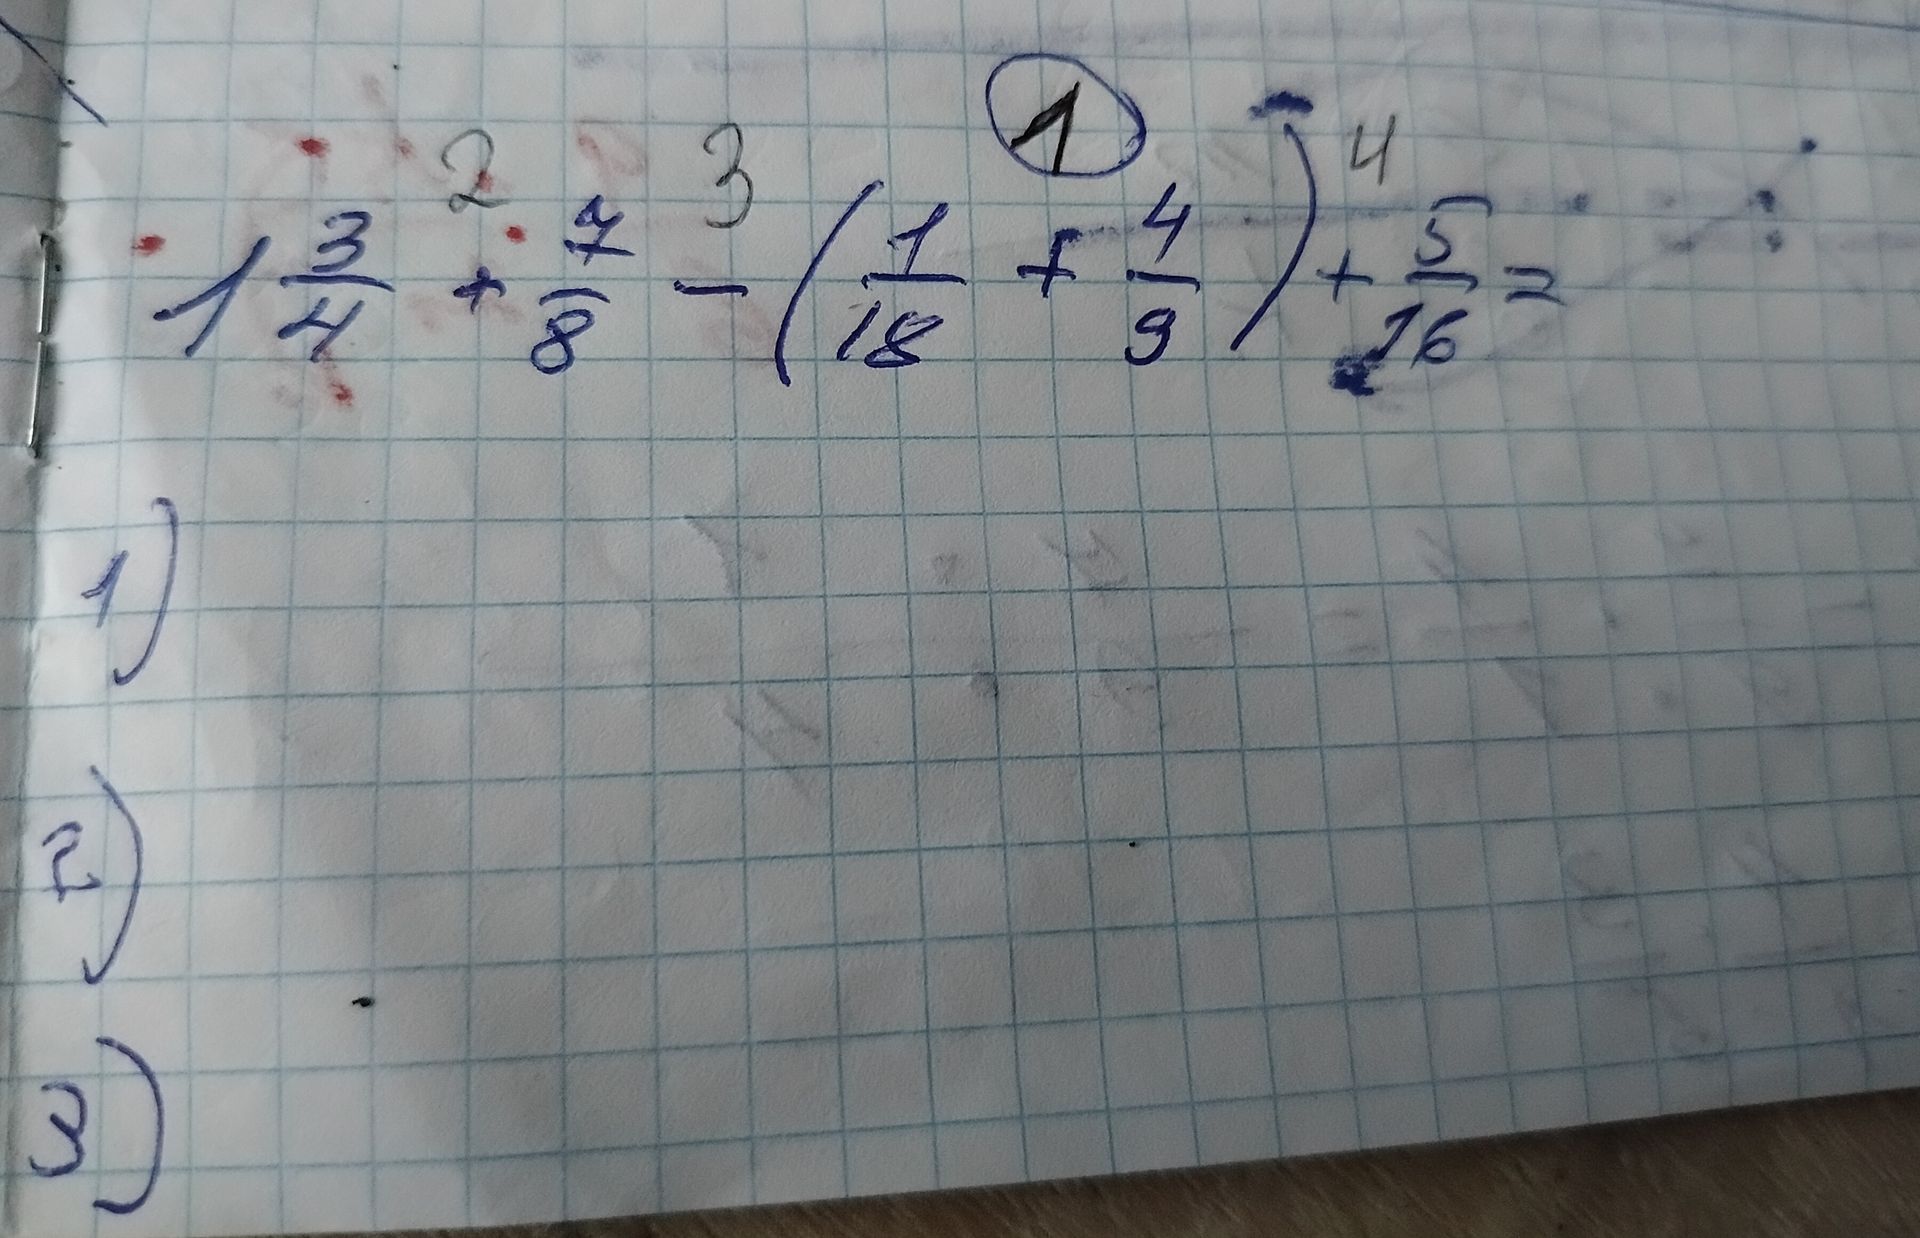 2 3 1 4
1 3/4 + 7/8 - (1/18 + 4/9) + 5/16 =
1)
2)
3)